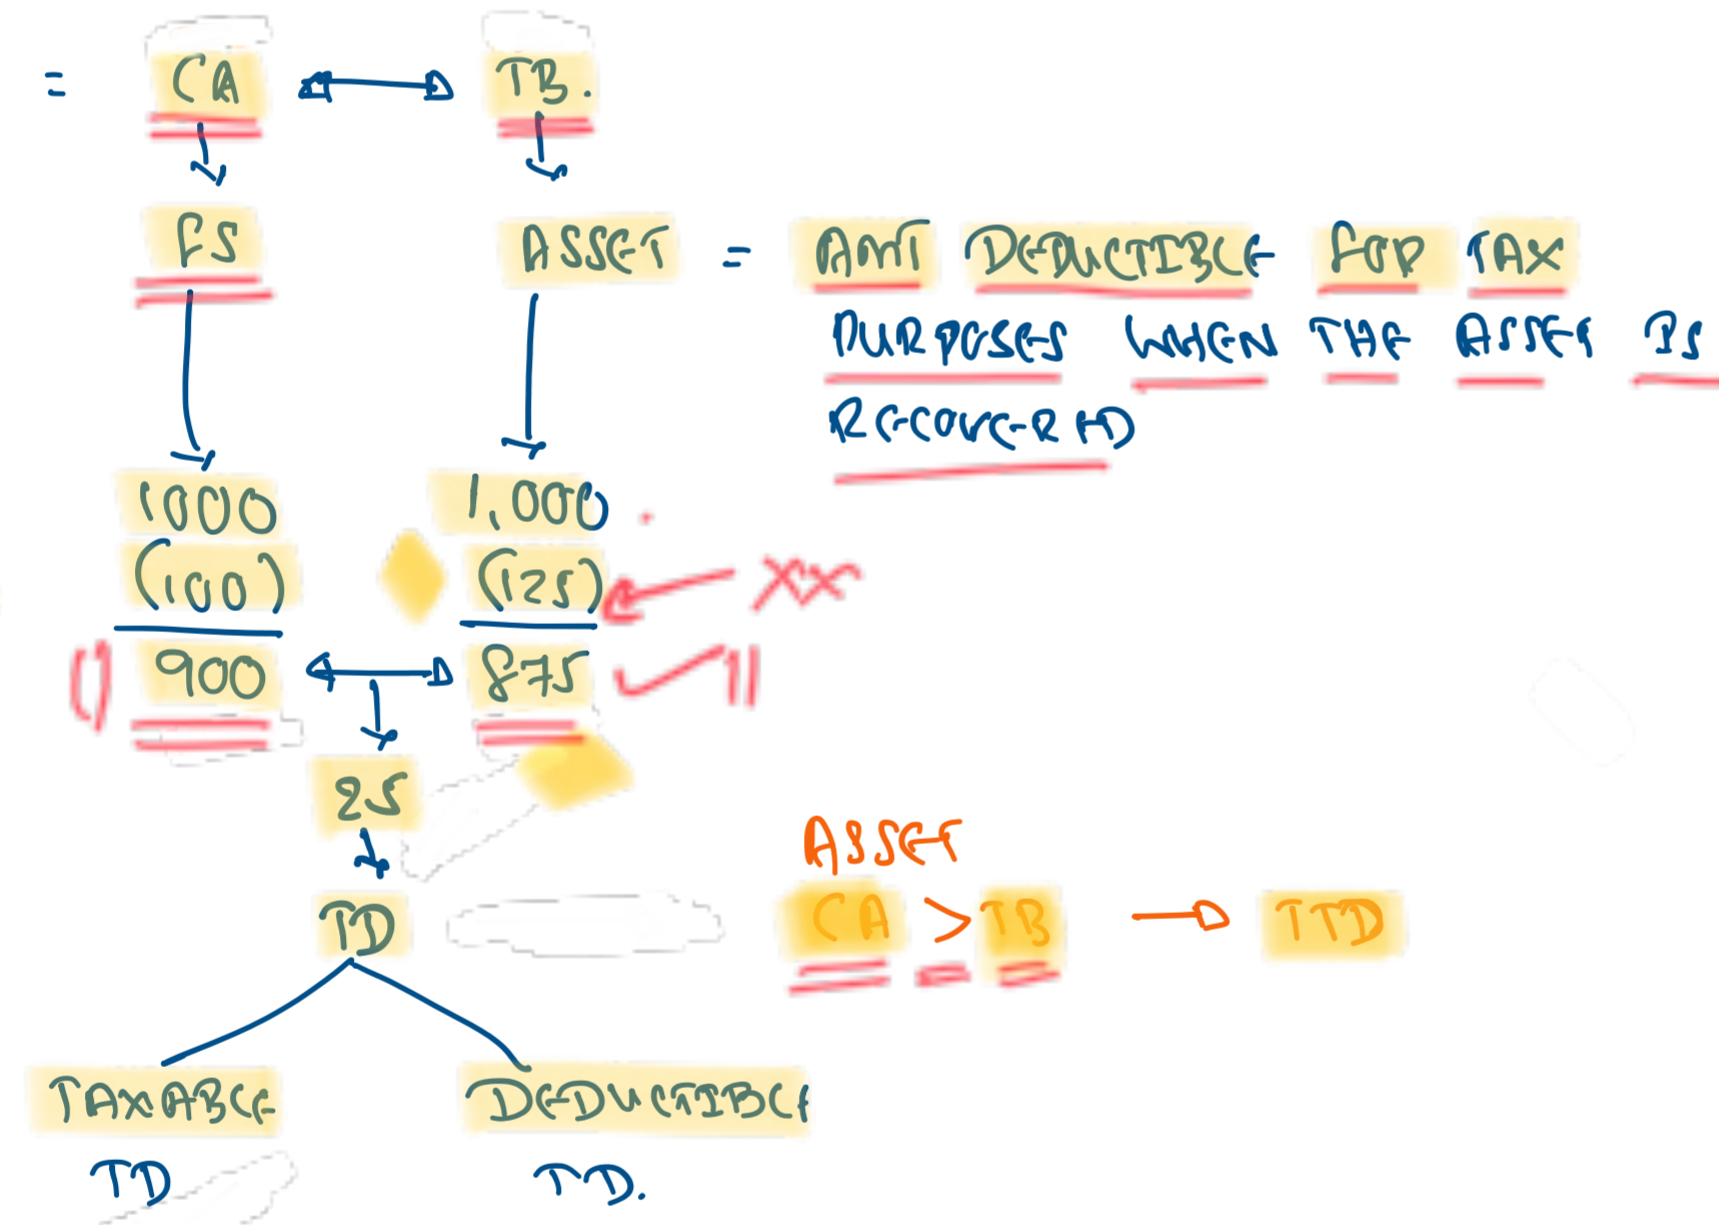 = CA TB.
FS ASSET = AMT DEDUCTIBLE FOR TAX
PURPOSES WHEN THE ASSET IS
RECOVERED
1000 1,000
(100) (125) XX
900 875
25
ASSET
TD CA > TB TTD
TAXABLE DEDUCTIBLE
TD TD.